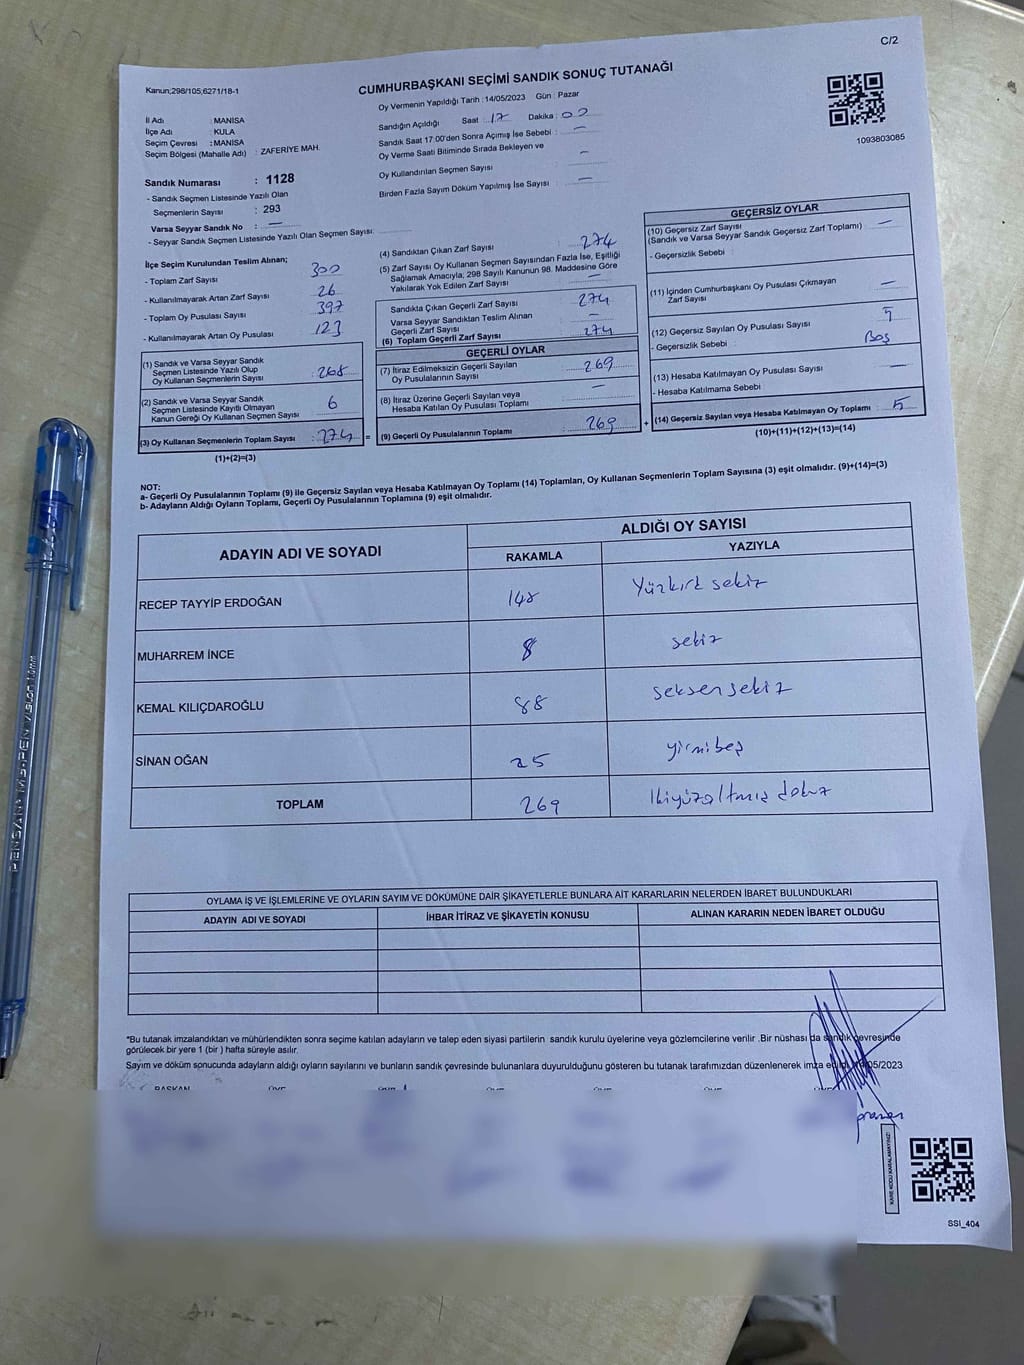 C/2
Kanun;298/105,6271/18-1
CUMHURBAŞKANI SEÇİMİ SANDIK SONUÇ TUTANAĞI
Oy Vermenin Yapıldığı Tarih : 14/05/2023 Gün : Pazar
İl Adı : MANİSA
İlçe Adı : KULA
Seçim Çevresi : MANİSA
Seçim Bölgesi (Mahalle Adı) : ZAFERİYE MAH.
Sandığın Açıldığı Saat : 17 Dakika : 00
Sandık Saat 17:00'den Sonra Açımış İse Sebebi : —
Oy Verme Saati Bitiminde Sırada Bekleyen ve
Oy Kullandırılan Seçmen Sayısı : —
Birden Fazla Sayım Döküm Yapılmış İse Sayısı : —
1093803085
Sandık Numarası : 1128
- Sandık Seçmen Listesinde Yazılı Olan
Seçmenlerin Sayısı : 293
Varsa Seyyar Sandık No : —
- Seyyar Sandık Seçmen Listesinde Yazılı Olan Seçmen Sayısı:
İlçe Seçim Kurulundan Teslim Alınan;
- Toplam Zarf Sayısı 300
- Kullanılmayarak Artan Zarf Sayısı 26
- Toplam Oy Pusulası Sayısı 397
- Kullanılmayarak Artan Oy Pusulası 123
(1) Sandık ve Varsa Seyyar Sandık
Seçmen Listesinde Yazılı Olup
Oy Kullanan Seçmenlerin Sayısı : 268
(2) Sandık ve Varsa Seyyar Sandık
Seçmen Listesinde Kayıtlı Olmayan
Kanun Gereği Oy Kullanan Seçmen Sayısı : 6
(3) Oy Kullanan Seçmenlerin Toplam Sayısı : 274 =
(1)+(2)=(3)
(4) Sandıktan Çıkan Zarf Sayısı : 274
(5) Zarf Sayısı Oy Kullanan Seçmen Sayısından Fazla İse, Eşitliği
Sağlamak Amacıyla, 298 Sayılı Kanunun 98. Maddesine Göre
Yakılarak Yok Edilen Zarf Sayısı : —
Sandıkta Çıkan Geçerli Zarf Sayısı : 274
Varsa Seyyar Sandıktan Teslim Alınan
Geçerli Zarf Sayısı : —
(6) Toplam Geçerli Zarf Sayısı : 274
GEÇERLİ OYLAR
(7) İtiraz Edilmeksizin Geçerli Sayılan
Oy Pusulalarının Sayısı : 269
(8) İtiraz Üzerine Geçerli Sayılan veya
Hesaba Katılan Oy Pusulası Toplamı : —
(9) Geçerli Oy Pusulalarının Toplamı : 269 +
GEÇERSİZ OYLAR
(10) Geçersiz Zarf Sayısı
(Sandık ve Varsa Seyyar Sandık Geçersiz Zarf Toplamı) : —
- Geçersizlik Sebebi :
(11) İçinden Cumhurbaşkanı Oy Pusulası Çıkmayan
Zarf Sayısı : —
(12) Geçersiz Sayılan Oy Pusulası Sayısı :
- Geçersizlik Sebebi : Boş
(13) Hesaba Katılmayan Oy Pusulası Sayısı : —
- Hesaba Katılmama Sebebi :
(14) Geçersiz Sayılan veya Hesaba Katılmayan Oy Toplamı : 5
(10)+(11)+(12)+(13)=(14)
NOT:
a- Geçerli Oy Pusulalarının Toplamı (9) ile Geçersiz Sayılan veya Hesaba Katılmayan Oy Toplamı (14) Toplamları, Oy Kullanan Seçmenlerin Toplam Sayısına (3) eşit olmalıdır. (9)+(14)=(3)
b- Adayların Aldığı Oyların Toplamı, Geçerli Oy Pusulalarının Toplamına (9) eşit olmalıdır.
ADAYIN ADI VE SOYADI
ALDIĞI OY SAYISI
RAKAMLA YAZIYLA
RECEP TAYYİP ERDOĞAN 148 Yüzkırk sekiz
MUHARREM İNCE 8 sekiz
KEMAL KILIÇDAROĞLU 88 seksensekiz
SİNAN OĞAN 25 yirmibeş
TOPLAM 269 ikiyüzaltmış dokuz
OYLAMA İŞ VE İŞLEMLERİNE VE OYLARIN SAYIM VE DÖKÜMÜNE DAİR ŞİKAYETLERLE BUNLARA AİT KARARLARIN NELERDEN İBARET BULUNDUKLARI
ADAYIN ADI VE SOYADI İHBAR İTİRAZ VE ŞİKAYETİN KONUSU ALINAN KARARIN NEDEN İBARET OLDUĞU
"Bu tutanak imzalandıktan ve mühürlendikten sonra seçime katılan adayların ve talep eden siyasi partilerin sandık kurulu üyelerine veya gözlemcilerine verilir .Bir nüshası da sandık çevresinde
görülecek bir yere 1 (bir ) hafta süreyle asılır.
Sayım ve döküm sonucunda adayların aldığı oyların sayılarını ve bunların sandık çevresinde bulunanlara duyurulduğunu gösteren bu tutanak tarafımızdan düzenlenerek imza edildi. 14/05/2023
BAŞKAN ÜYE ÜYE ÜYE ÜYE ÜYE
KARE KODU KARALAMAYINIZ!
SSI_404
PENSAN MY-PEN